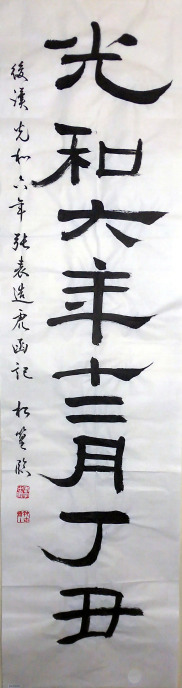 光和六年十二月丁丑
後漢光和六年張表造虎函記
臨